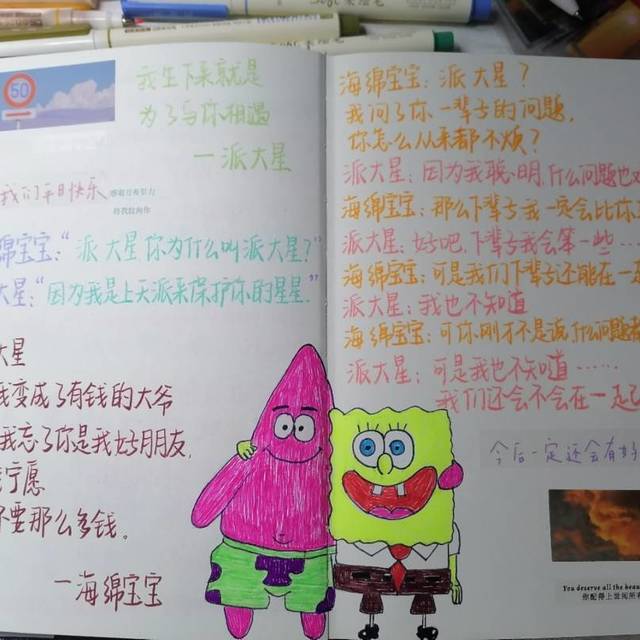 50
我生下来就是
为了与你相遇
—派大星
我们平日快乐
感取万有引力
将我拉向你
绵宝宝：“派大星你为什么叫派大星？”
大星：“因为我是上天派来保护你的星星.”
大星
我变成了有钱的大爷
我忘了你是我好朋友,
宁愿
不要那么多钱。
—海绵宝宝
海绵宝宝：派大星？
我问了你一辈子的问题,
你怎么从来都不烦？
派大星：因为我聪明,什么问题也
海绵宝宝：那么下辈子我一定会比你
派大星：好吧,下辈子我会笨一些…
海绵宝宝：可是我们下辈子还能在一
派大星：我也不知道
海绵宝宝：可你刚才不是说什么问题
派大星：可是我也不知道……
我们还会不会在一起
今后一定还会有好
You deserve all the beau
你配得上世间所有